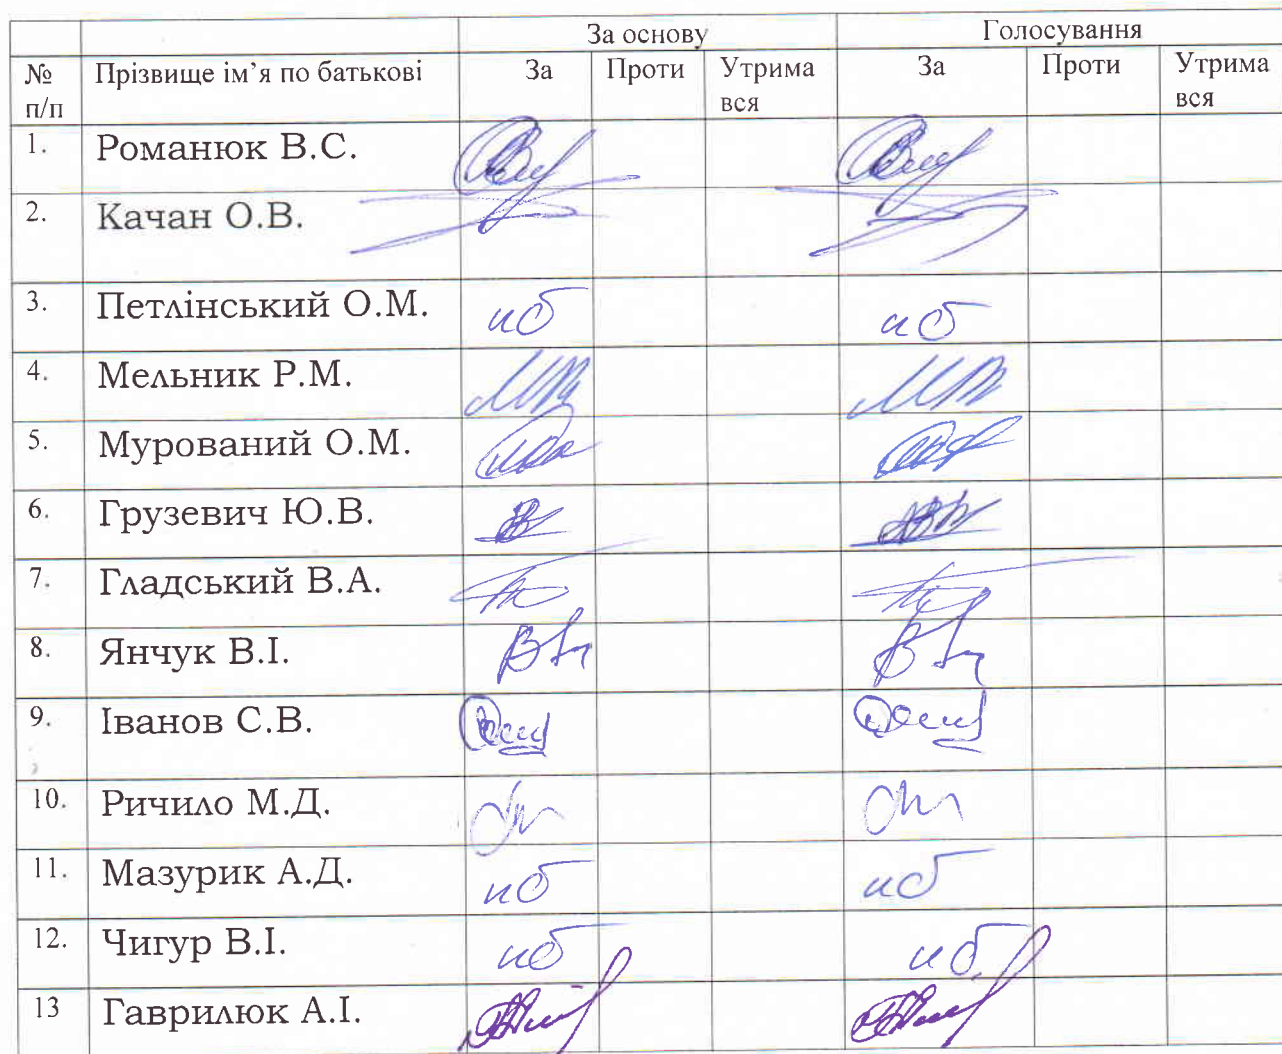 За основу Голосування
№ п/п Прізвище ім’я по батькові За Проти Утрима вся За Проти Утрима вся
1. Романюк В.С.
2. Качан О.В.
3. Петлінський О.М. нб нб
4. Мельник Р.М.
5. Мурований О.М.
6. Грузевич Ю.В.
7. Гладський В.А.
8. Янчук В.І.
9. Іванов С.В.
10. Ричило М.Д.
11. Мазурик А.Д. нб нб
12. Чигур В.І. нб нб
13 Гаврилюк А.І.